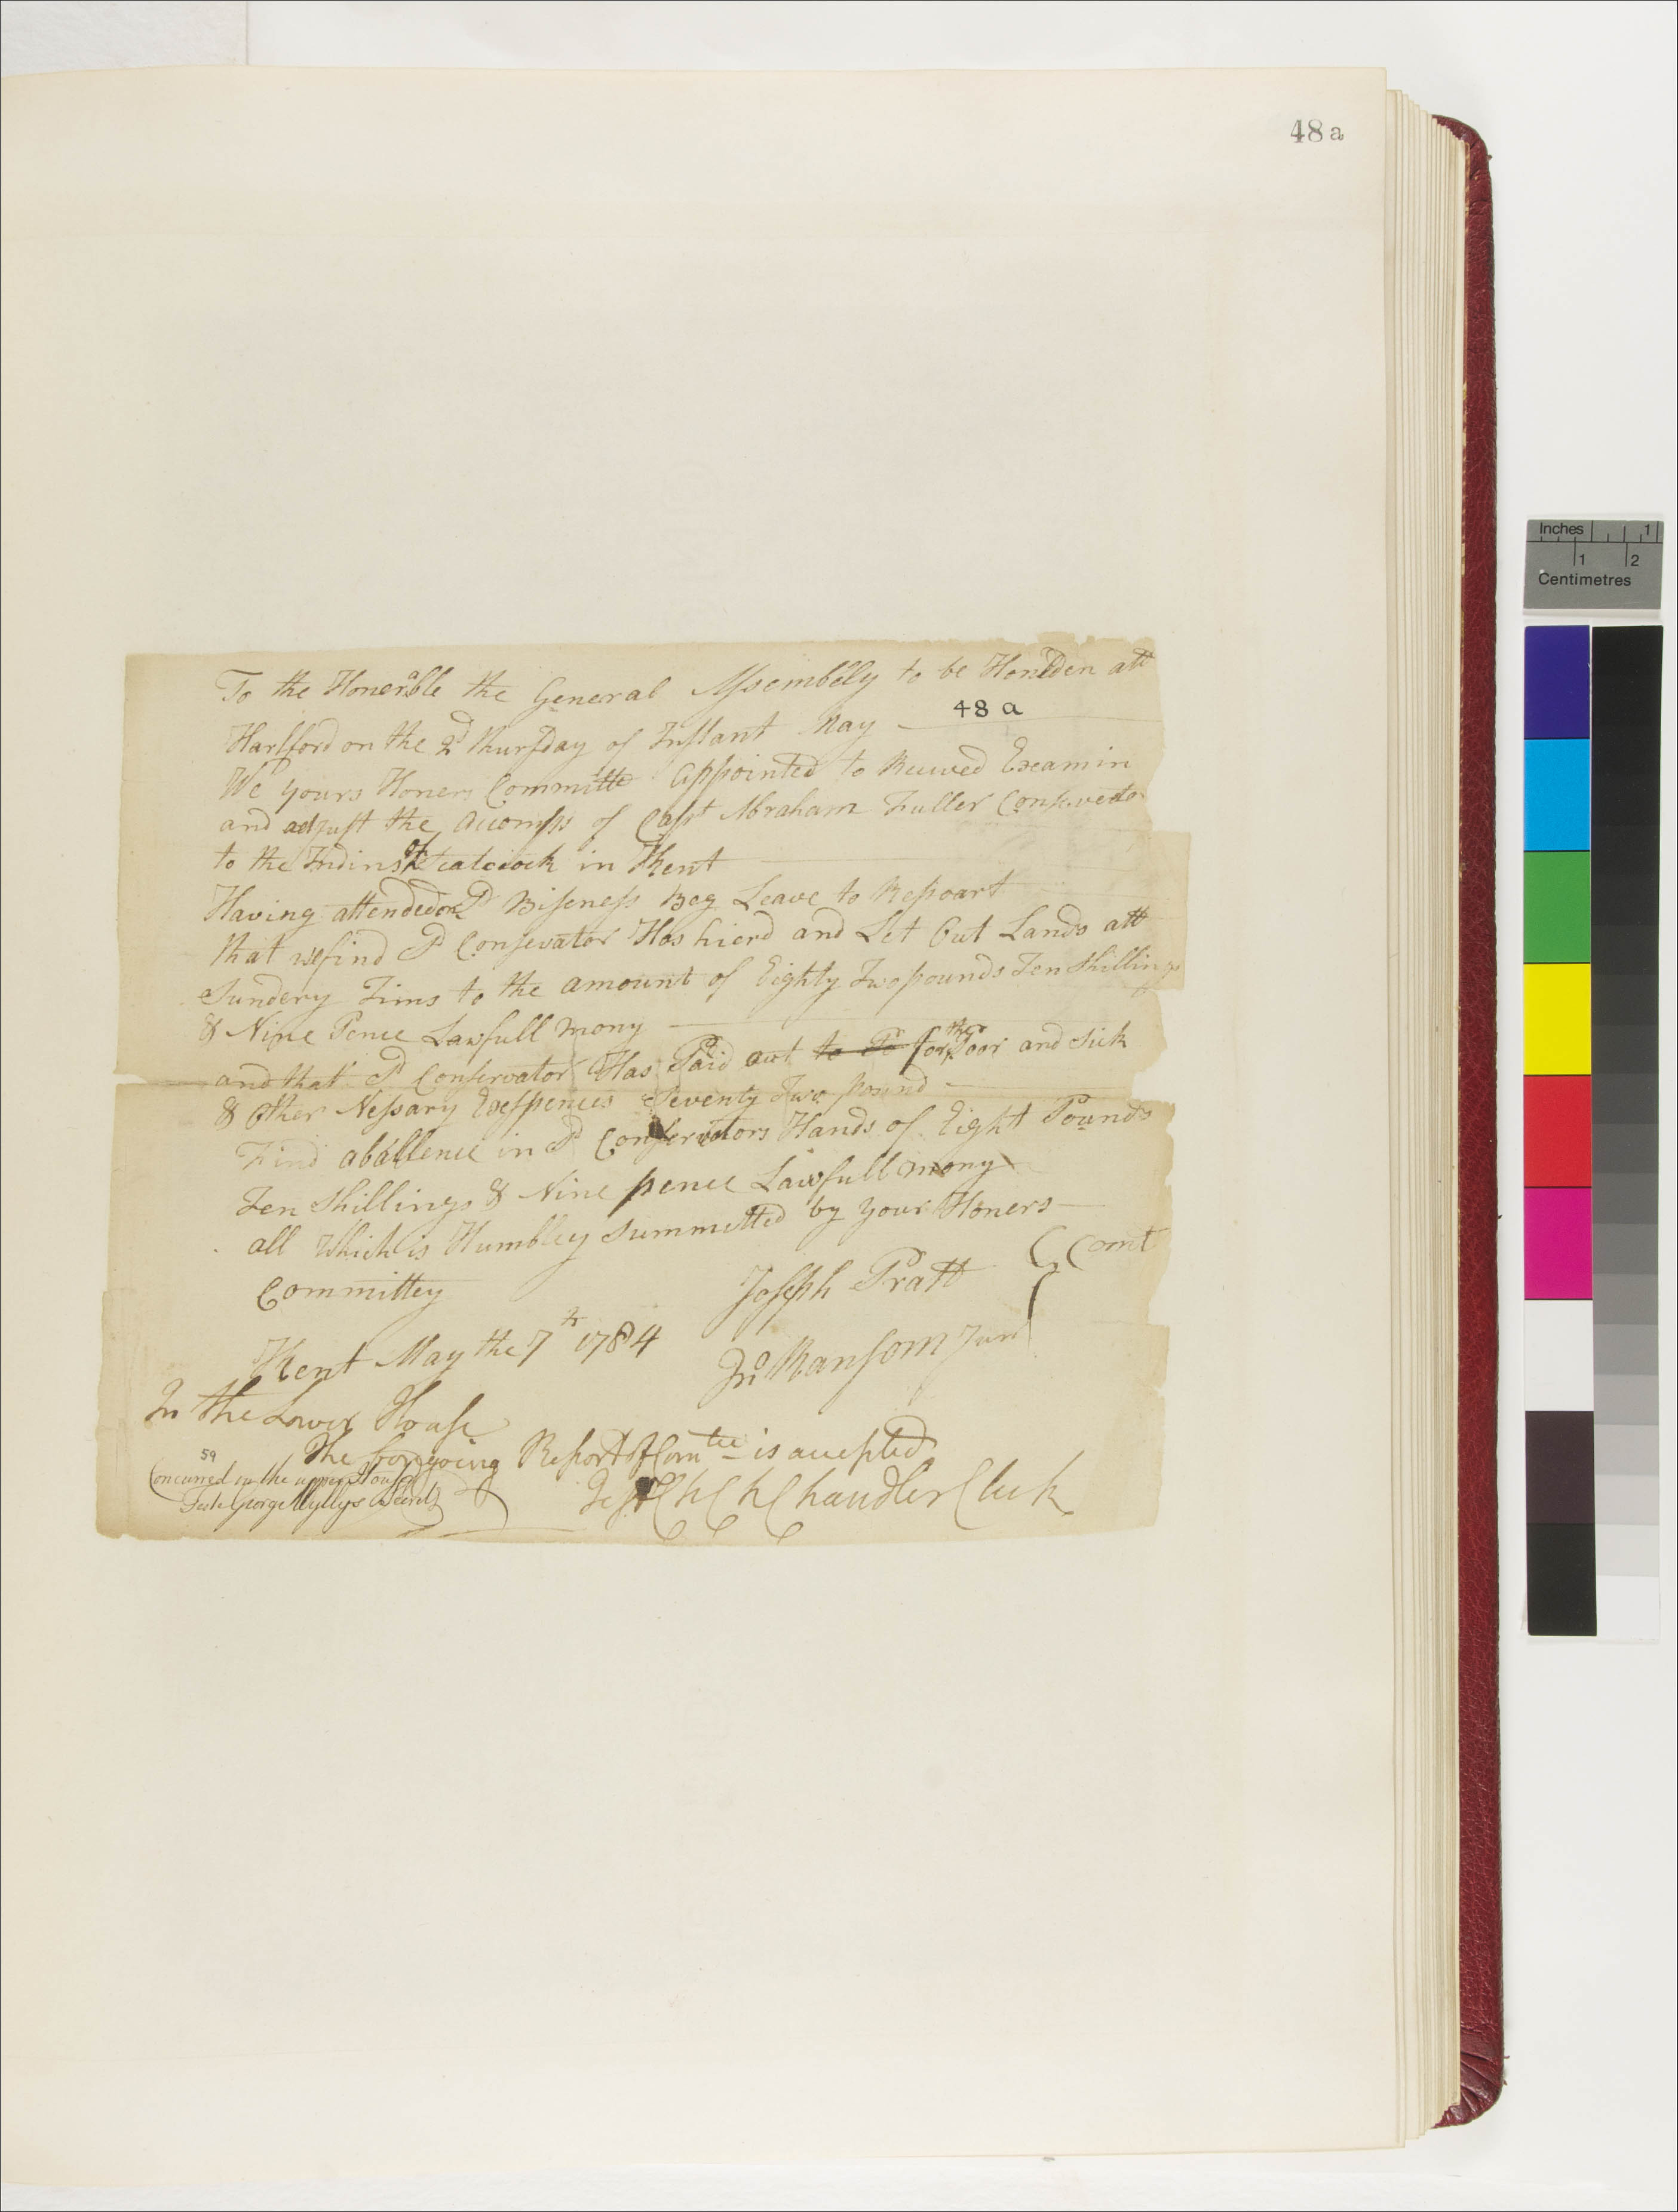 48 a
To the Honerable the General Assembely to be Honlden att
48 a
Hartford on the 2d thursday of Instant May
We yours Honers Committe Appointed to Recived Exeamin
and adjust the accompts of Capt Abraham Fuller Consevetor
to the Indins of Scatecock in Kent
Having attended on sd Biseness Beg Leave to Repoart
that we find sd Consevator Has hierd and Let Out Lands att
Sundery Tims to the amount of Eighty Two pounds Ten Shillings
& Nine Pence Lawfull mony
and that sd Conservator Has Paid out to for the Poor and Sick
& Other Nessary Exespences Seventy Two pound
Find aballence in sd Conservators Hands of Eight Pounds
Ten Shillings & Nine pence Lawfull mony
all Which is Humbley Summitted by your Honers
Committey
Joseph Pratt
Comt
Kent May the 7th 1784
Jno Ransom Jun
In the Lower House
The foregoing Report of Comtee is accepted
59
Concurred in the upper House
Test George Wyllys Secret
Test Ch Ch Chandler Clerk
Inches 1
1 2
Centimetres